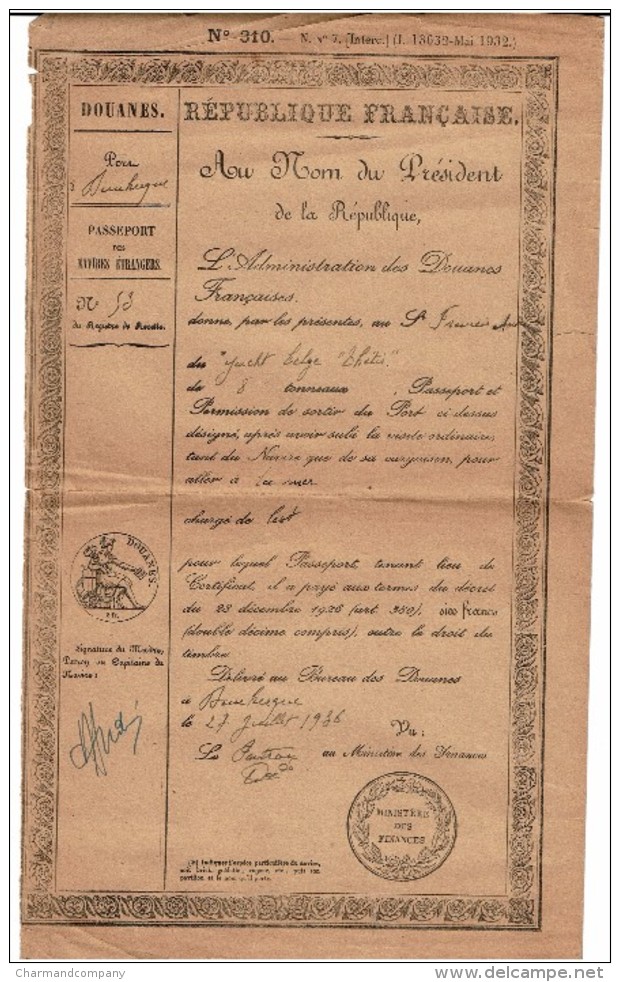 Nº 310. — N. nº 7. (Interc.) (I. 13638-Mai 1932.)
DOUANES.
Port
Dunkerque
PASSEPORT
DES
NAVIRES ÉTRANGERS.
Nº 53
du Registre de Recette.
RÉPUBLIQUE FRANÇAISE.
Au Nom du Président
de la République,
L'Administration des Douanes
Françaises.
donne, par les présentes, au Sr
du "yacht belge "Thétis"
de 8 tonneaux, Passeport et
Permission de sortir du Port ci-dessus
désigné, après avoir subi la visite ordinaire,
tant du Navire que de sa cargaison, pour
aller à la mer
chargé de lest
pour lequel Passeport, tenant lieu de
Certificat, il a payé aux termes du décret
du 28 décembre 1926 (art. 350), six francs
(double décime compris), outre le droit du
timbre
Délivré au Bureau des Douanes
à Dunkerque
le 27 juillet 1936
Vu:
Le
au Ministère des Finances
DOUANES.
Signature du Maître,
Patron ou Capitaine du
Navire:
MINISTÈRE
DES
FINANCES
(a) Indiquer l'espèce particulière du navire,
soit brick, goëlette, sloop, etc., soit son
pavillon et le nom qu'il porte.
Charmandcompany
www.delcampe.net